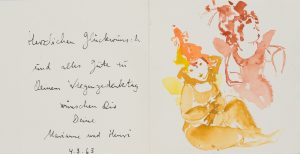 Herzlichen Glückwunsch
und alles Gute zu
Deinem Wiegengedenktag
wünschen Dir
Deine
Marianne und Henri
4.9.63